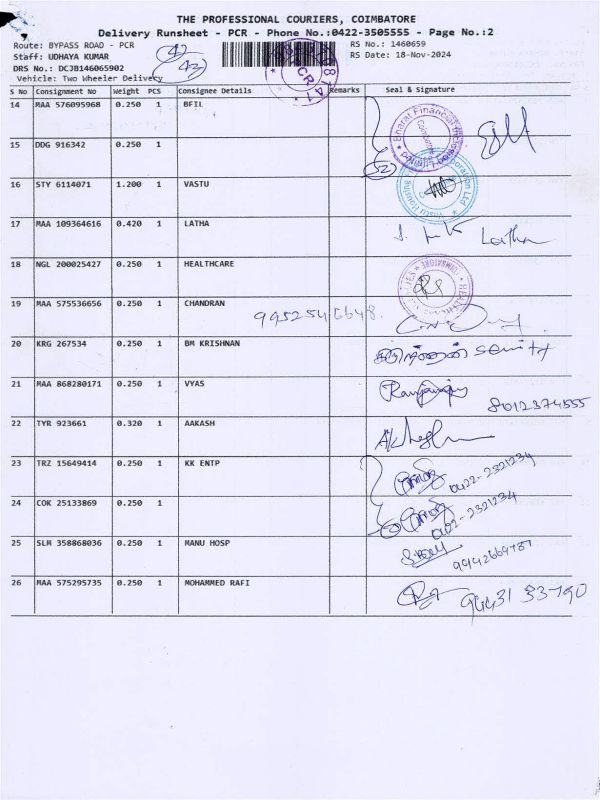 THE PROFESSIONAL COURIERS, COIMBATORE
Delivery Runsheet - PCR - Phone No.:0422-3505555 - Page No.:2
Route: BYPASS ROAD - PCR RS No.: 1460659
Staff: UDHAYA KUMAR RS Date: 18-Nov-2024
DRS No.: DCJB146065902
Vehicle: Two Wheeler Delivery
S No Consignment No Weight PCS Consignee Details Remarks Seal & Signature
14 MAA 576095968 0.250 1 BFIL
15 DDG 916342 0.250 1
16 STY 6114071 1.200 1 VASTU
17 MAA 109364616 0.420 1 LATHA Latha
18 NGL 200025427 0.250 1 HEALTHCARE
19 MAA 575536656 0.250 1 CHANDRAN
20 KRG 267534 0.250 1 BM KRISHNAN
21 MAA 868280171 0.250 1 VYAS
8012374555
22 TYR 923661 0.320 1 AAKASH
23 TRZ 15649414 0.250 1 KK ENTP 0422-2321234
24 COK 25133869 0.250 1 0422-2321234
25 SLM 358868036 0.250 1 MANU HOSP
26 MAA 575295735 0.250 1 MOHAMMED RAFI 94431 33790